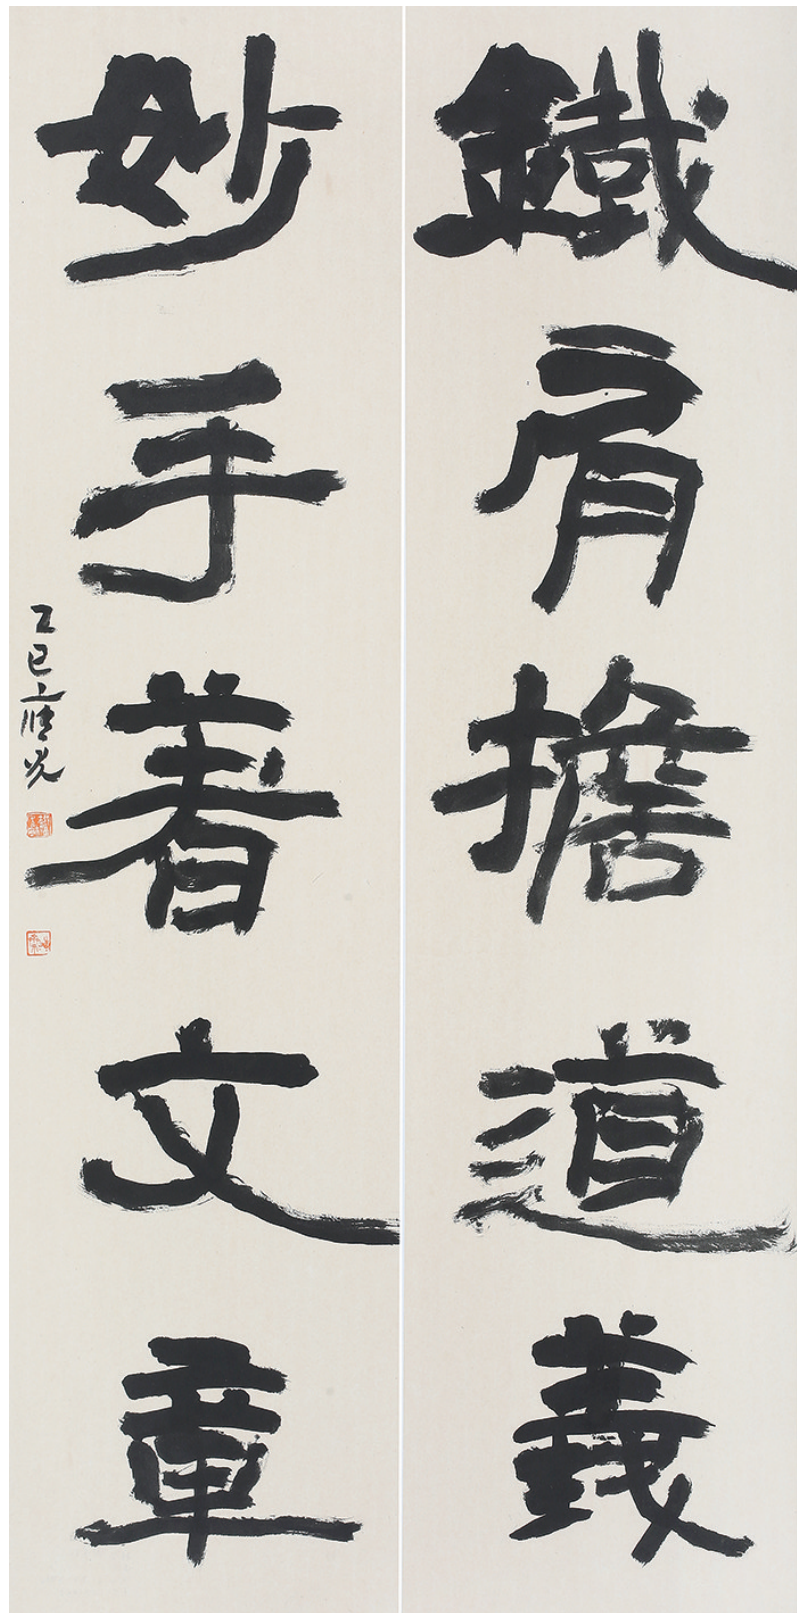 鐵肩擔道義
妙手著文章
乙巳